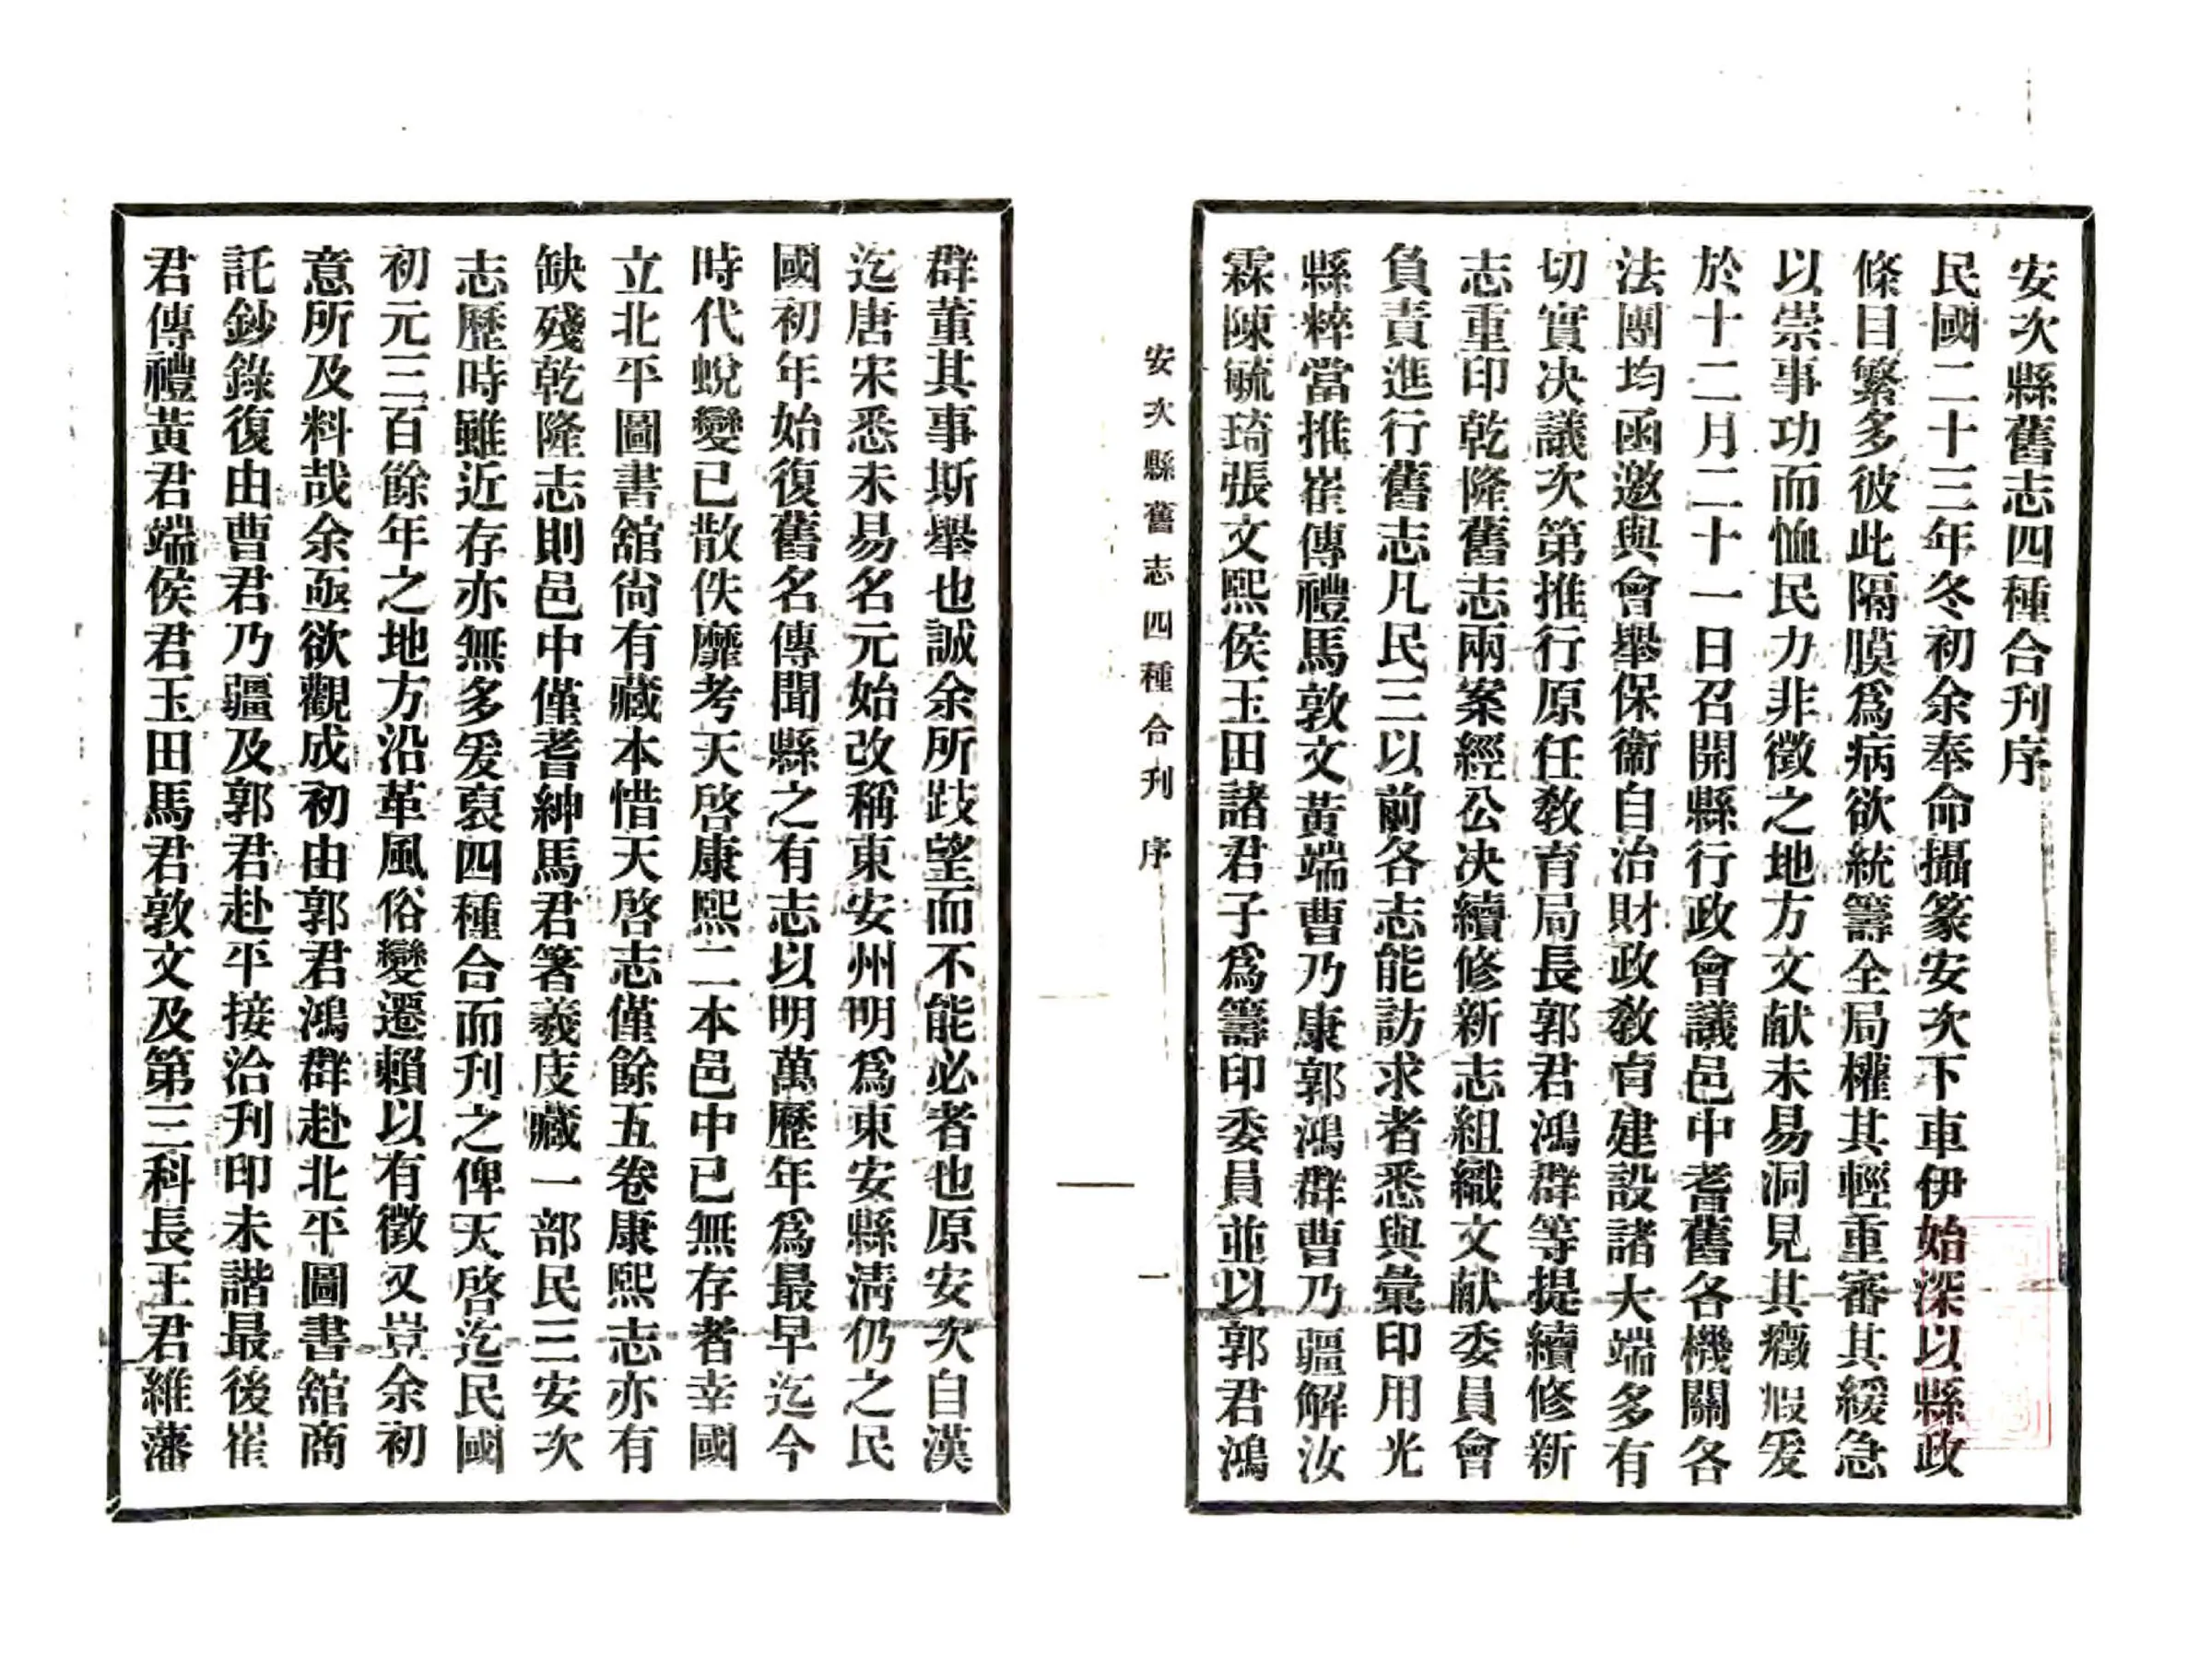 安次縣舊志四種合刊序
民國二十三年冬初余奉命攝篆安次下車伊始深以縣政
條目繁多彼此隔膜爲病欲統籌全局權其輕重審其緩急
以崇事功而恤民力非徵之地方文献未易洞見其癥瘕爰
於十二月二十一日召開縣行政會議邑中耆舊各機關各
法團均函邀與會舉保衞自治財政敎育建設諸大端多有
切實决議次第推行原任敎育局長郭君鴻群等提續修新
志重印乾隆舊志兩案經公决續修新志組織文献委員會
負責進行舊志凡民三以前各志能訪求者悉與彙印用光
縣粹當推崔傳禮馬敦文黃端曹乃康郭鴻群曹乃疆解汝
霖陳毓琦張文熙侯玉田諸君子爲籌印委員並以郭君鴻
安次縣舊志四種合刊 序
一
群董其事斯舉也誠余所跂望而不能必者也原安次自漢
迄唐宋悉未易名元始改稱東安州明爲東安縣淸仍之民
國初年始復舊名傳聞縣之有志以明萬歷年爲最早迄今
時代蛻變已散佚靡考天啓康熙二本邑中已無存者幸國
立北平圖書舘尙有藏本惜天啓志僅餘五卷康熙志亦有
缺殘乾隆志則邑中僅耆紳馬君箸羲庋藏一部民三安次
志歷時雖近存亦無多爰裒四種合而刊之俾天啓迄民國
初元三百餘年之地方沿革風俗變遷賴以有徵又豈余初
意所及料哉余亟欲觀成初由郭君鴻群赴北平圖書舘商
託鈔錄復由曹君乃疆及郭君赴平接洽刋印未諧最後崔
君傳禮黃君端侯君玉田馬君敦文及第三科長王君維藩